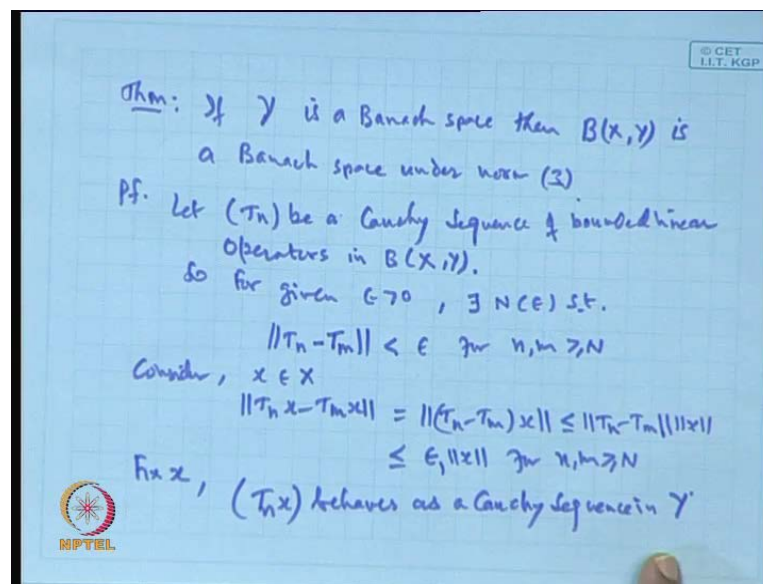 © CET
I.I.T. KGP
Thm: If Y is a Banach space then B(X,Y) is
a Banach space under norm (3)
Pf. Let (Tn) be a Cauchy Sequence of bounded linear
Operators in B(X,Y).
So for given ε>0, ∃ N(ε) s.t.
||Tn - Tm|| < ε for n,m ≥ N
Consider, x ∈ X
||Tn x - Tm x|| = ||(Tn - Tm)x|| ≤ ||Tn - Tm|| ||x||
≤ ε, ||x|| for n,m ≥ N
Fix x, (Tn x) behaves as a Cauchy Sequence in Y
NPTEL